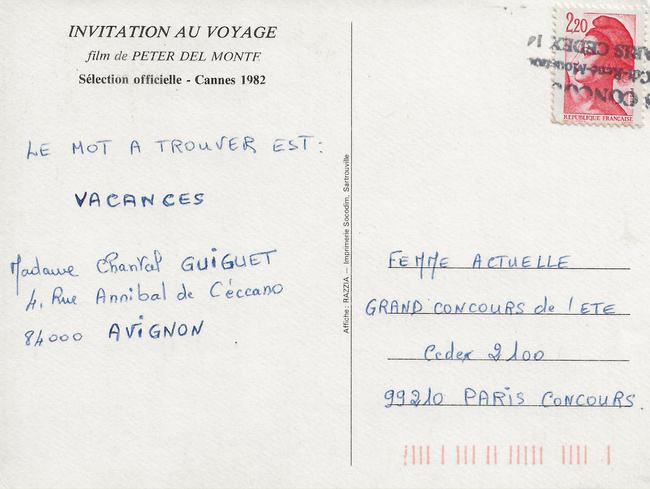 INVITATION AU VOYAGE
film de PETER DEL MONTE
Sélection officielle - Cannes 1982
LE MOT A TROUVER EST:
VACANCES
Madame Chantal GUIGUET
4, Rue Annibal de Céccano
84000 AVIGNON
Affiche: RAZZIA — Imprimerie Socodim, Sartrouville
2,20
REPUBLIQUE FRANÇAISE
PARIS CEDEX
FEMME ACTUELLE
GRAND CONCOURS de l'ETE
Cedex 2100
99210 PARIS CONCOURS.